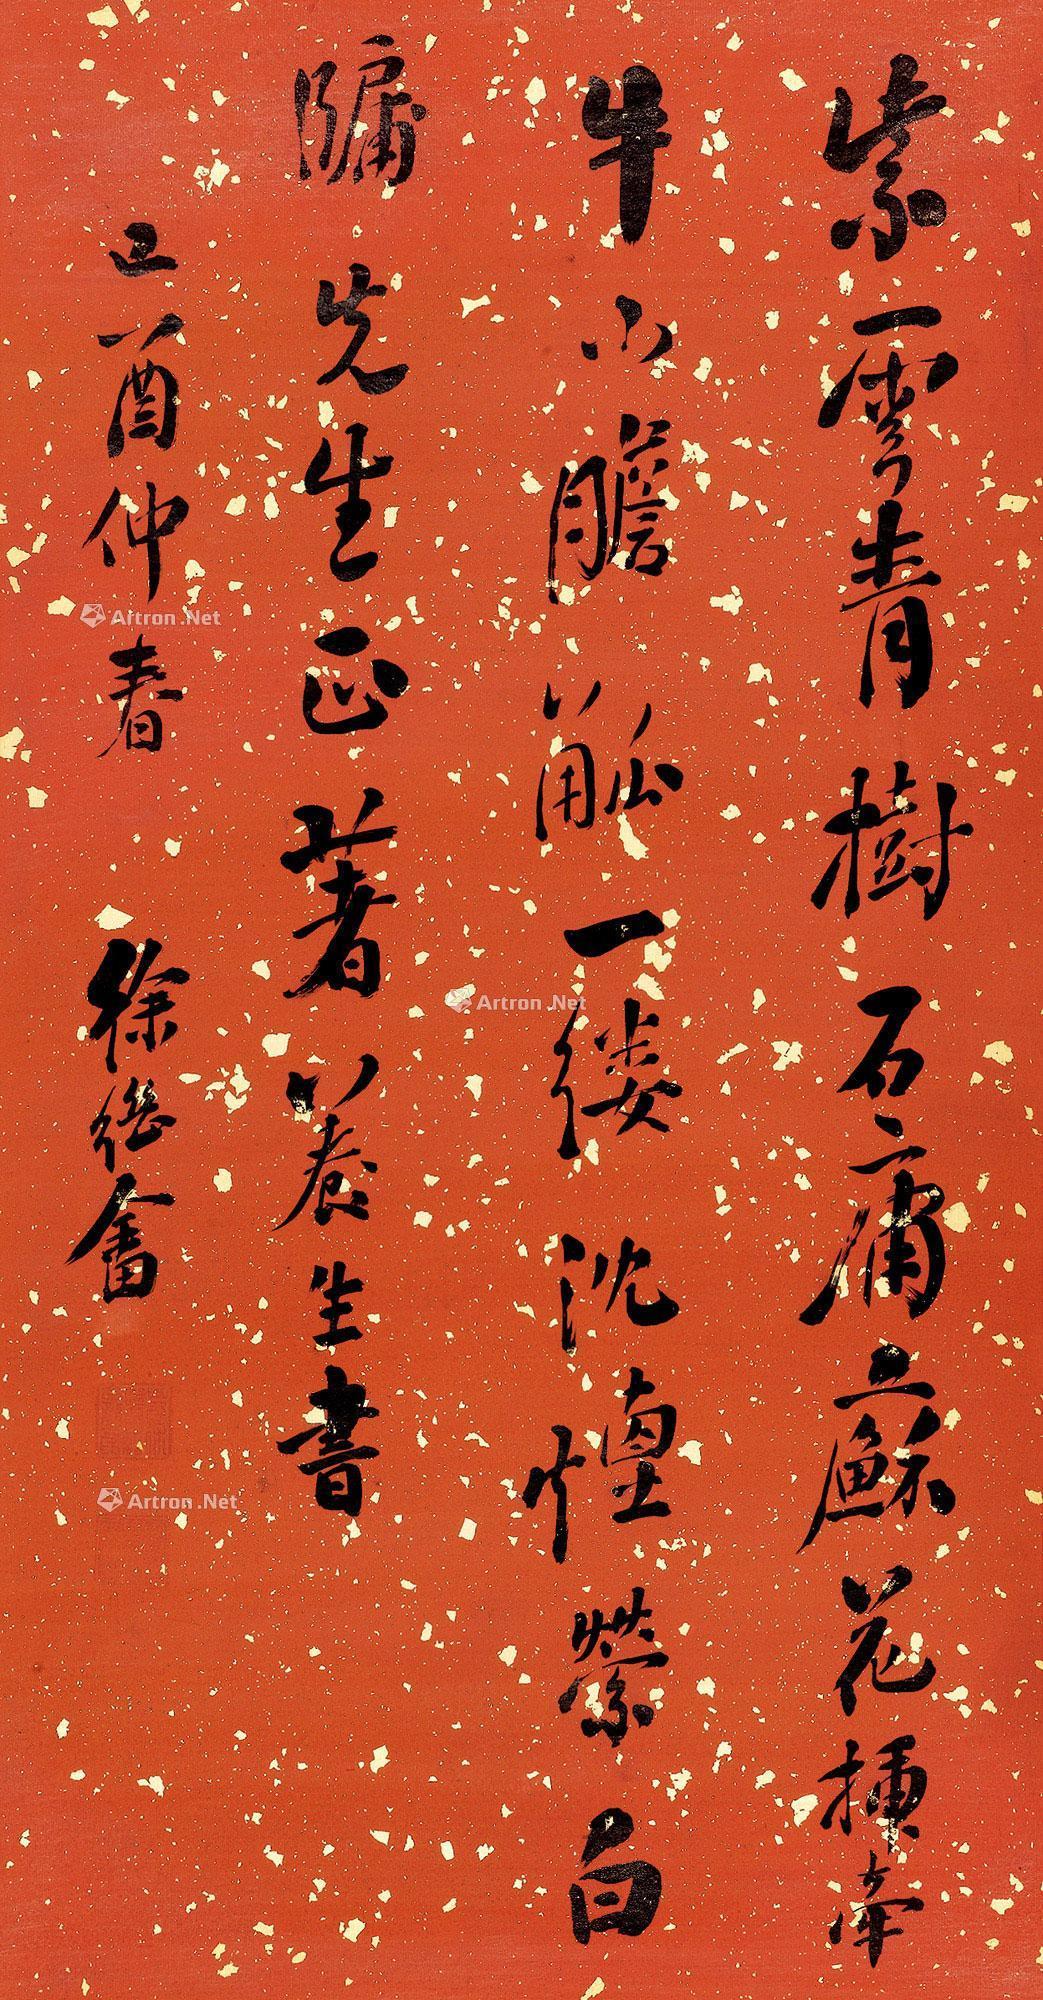 紫雪青樹石庸蘇花插牽
牛小膽瓶一縷沈檀縈白
牖先生正著養生書
丁酉仲春 徐繼畬
Artron.Net
Artron.Net
Artron.Net